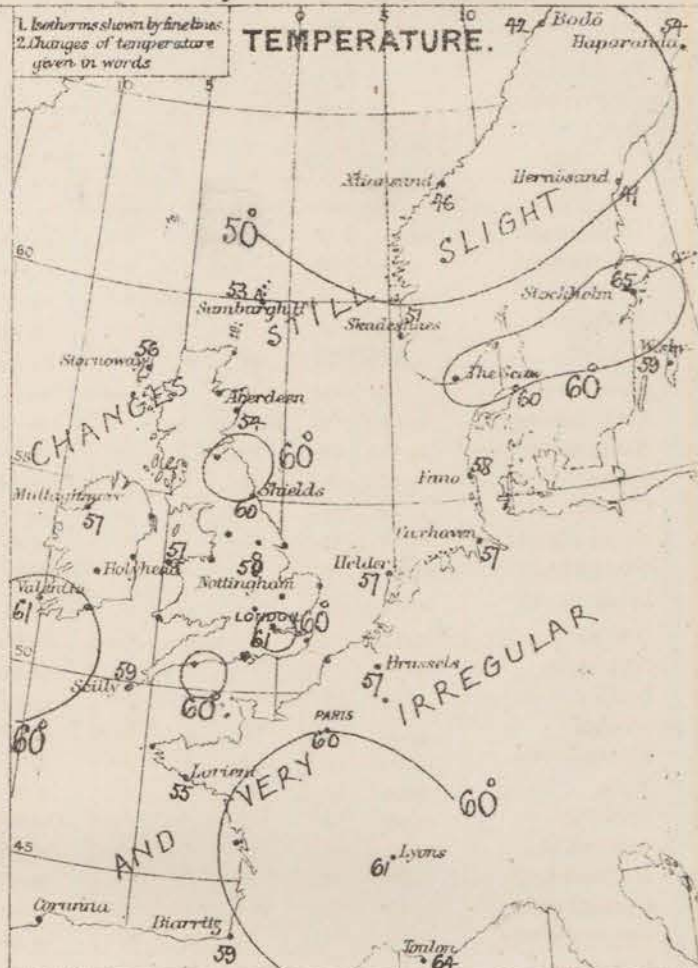 1. Isotherms shown by fine lines.
2. Changes of temperature
given in words
TEMPERATURE.
0
5
10
5
42 Bodö
54
Haparanda
Xtiansund
46
Hernösand
SLIGHT
50°
60
53
Sumburgh Hd
STILL
Skadesnaes
51
65
Stockholm
Stornoway
56
The Scaw
60
60°
Wisby
59
CHANGES
Aberdeen
54
55
60°
Shields
60
Fano
58
Mullaghmore
57
Cuxhaven
57
Holyhead
57
Nottingham
Helder
57
Valentia
61
LONDON
61
60°
50
Scilly
59
60°
Brussels
57
IRREGULAR
60°
PARIS
60
Lorient
55
VERY
60°
AND
45
Lyons
61
Corunna
Biarritz
59
Toulon
64